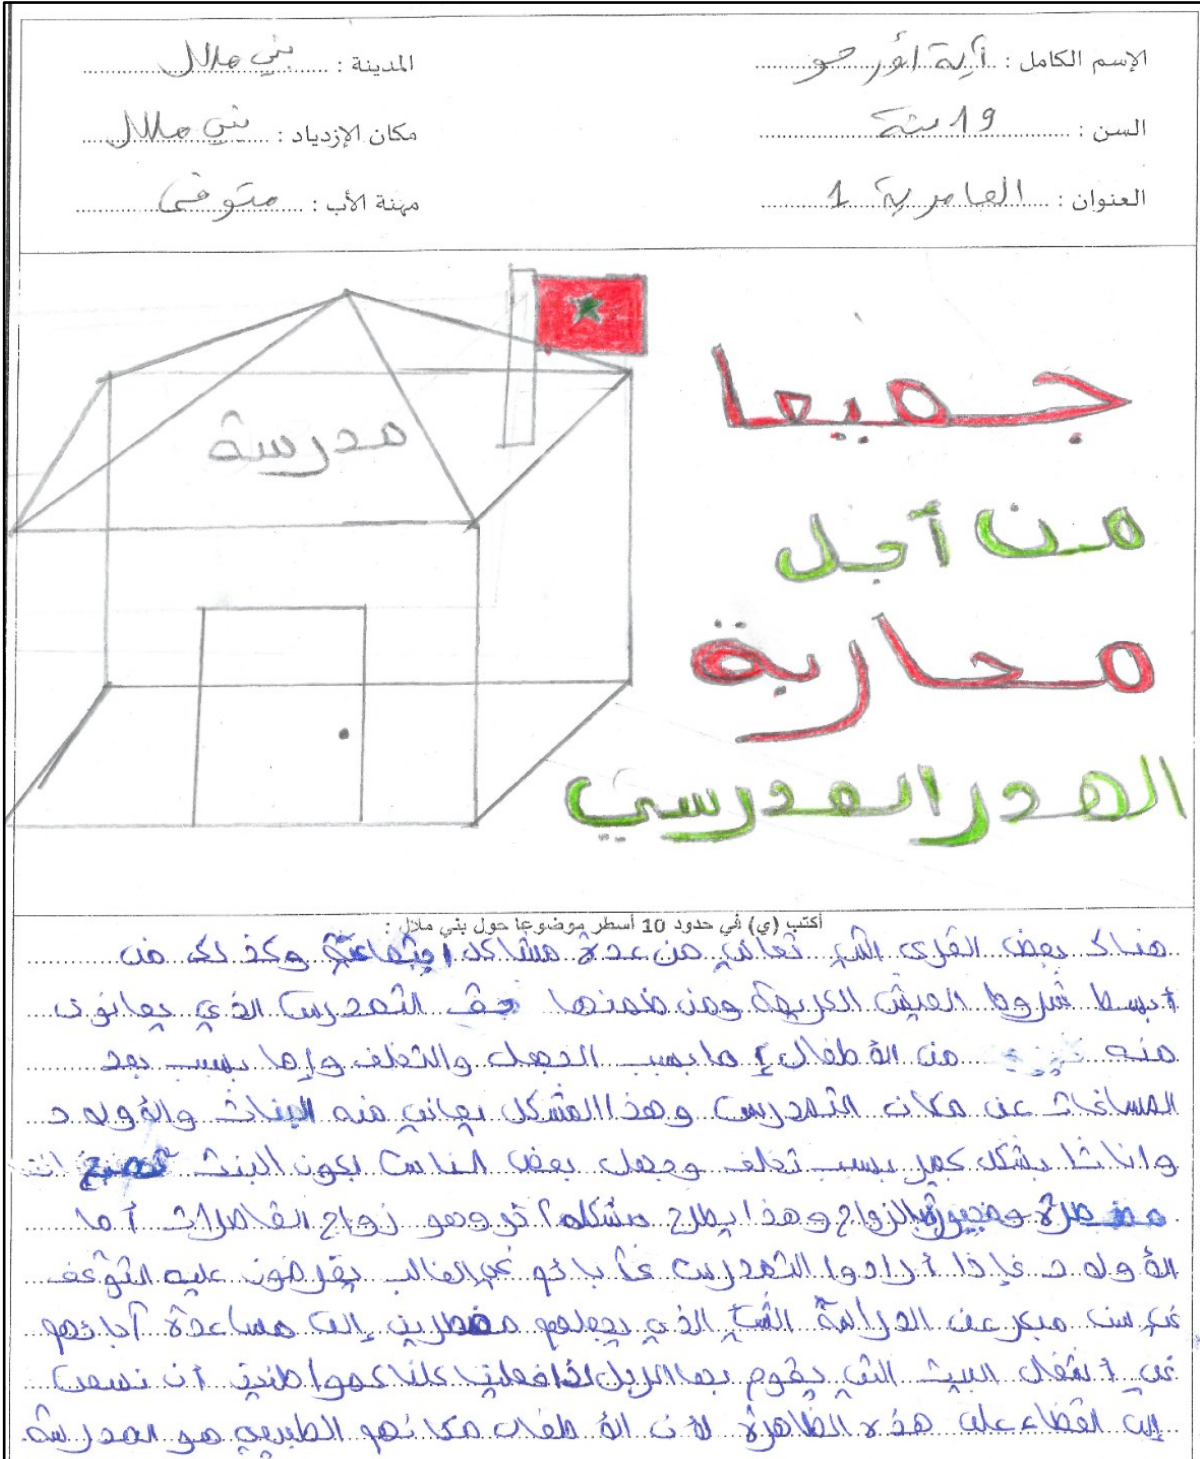 الإسم الكامل : آية أورحو
المدينة : بني ملال
السن : 19 سنة
مكان الإزدياد : بني ملال
العنوان : العامرية 1
مهنة الأب : متوفى
مدرسة
جميعا
من أجل
محاربة
الهدر المدرسي
أكتب (ي) في حدود 10 أسطر موضوعا حول بني ملال :
هناك بعض القرى التي تعاني من عدة مشاكل اجتماعية وكذلك من
أبسط شروط العيش الكريمة ومن ضمنها حق التمدرس الذي يعانون
منه من الأطفال إما بسبب الجهل والتخلف وإما بسبب بعد
المسافات عن مكان التمدرس وهذا المشكل يعاني منه البنات والأولاد
واناثا بشكل كبير بسبب تخلف وجهل بعض الناس بكون البنت
مضطرة ومجبورة بالزواج وهذا يطرح مشكلا وهو زواج القاصرات أما
الأولاد فإذا أرادوا التمدرس فآبائهم في الغالب يفرضون عليه التوقف
في سن مبكر عن الدراسة الشيء الذي يجعلهم مضطرين إلى مساعدة آبائهم
في أشغال البيت التي يقوم بها الرجل لذا فعلينا كلنا كمواطنين أن نسعى
إلى القضاء على هذه الظاهرة لأن الأطفال مكانهم الطبيعي هو المدرسة.